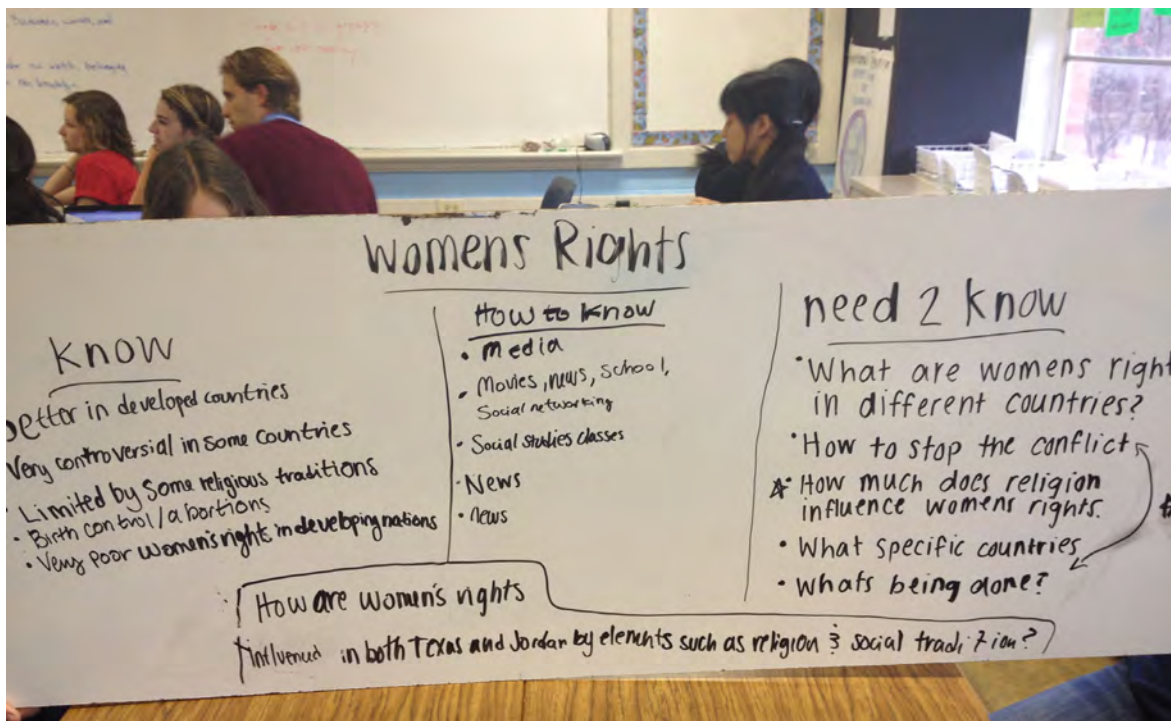 Womens Rights
Know
better in developed countries
Very controversial in some countries
• Limited by some religious traditions
• Birth control/abortions
• Very poor women's rights in developing nations
How to know
• Media
• Movies, news, school,
Social networking
• Social studies classes
• News
• news
need 2 know
• What are womens right
in different countries?
• How to stop the conflict
• How much does religion
influence womens rights.
• What specific countries
• Whats being done?
How are women's rights
in both Texas and Jordan by elements such as religion & social tradition?